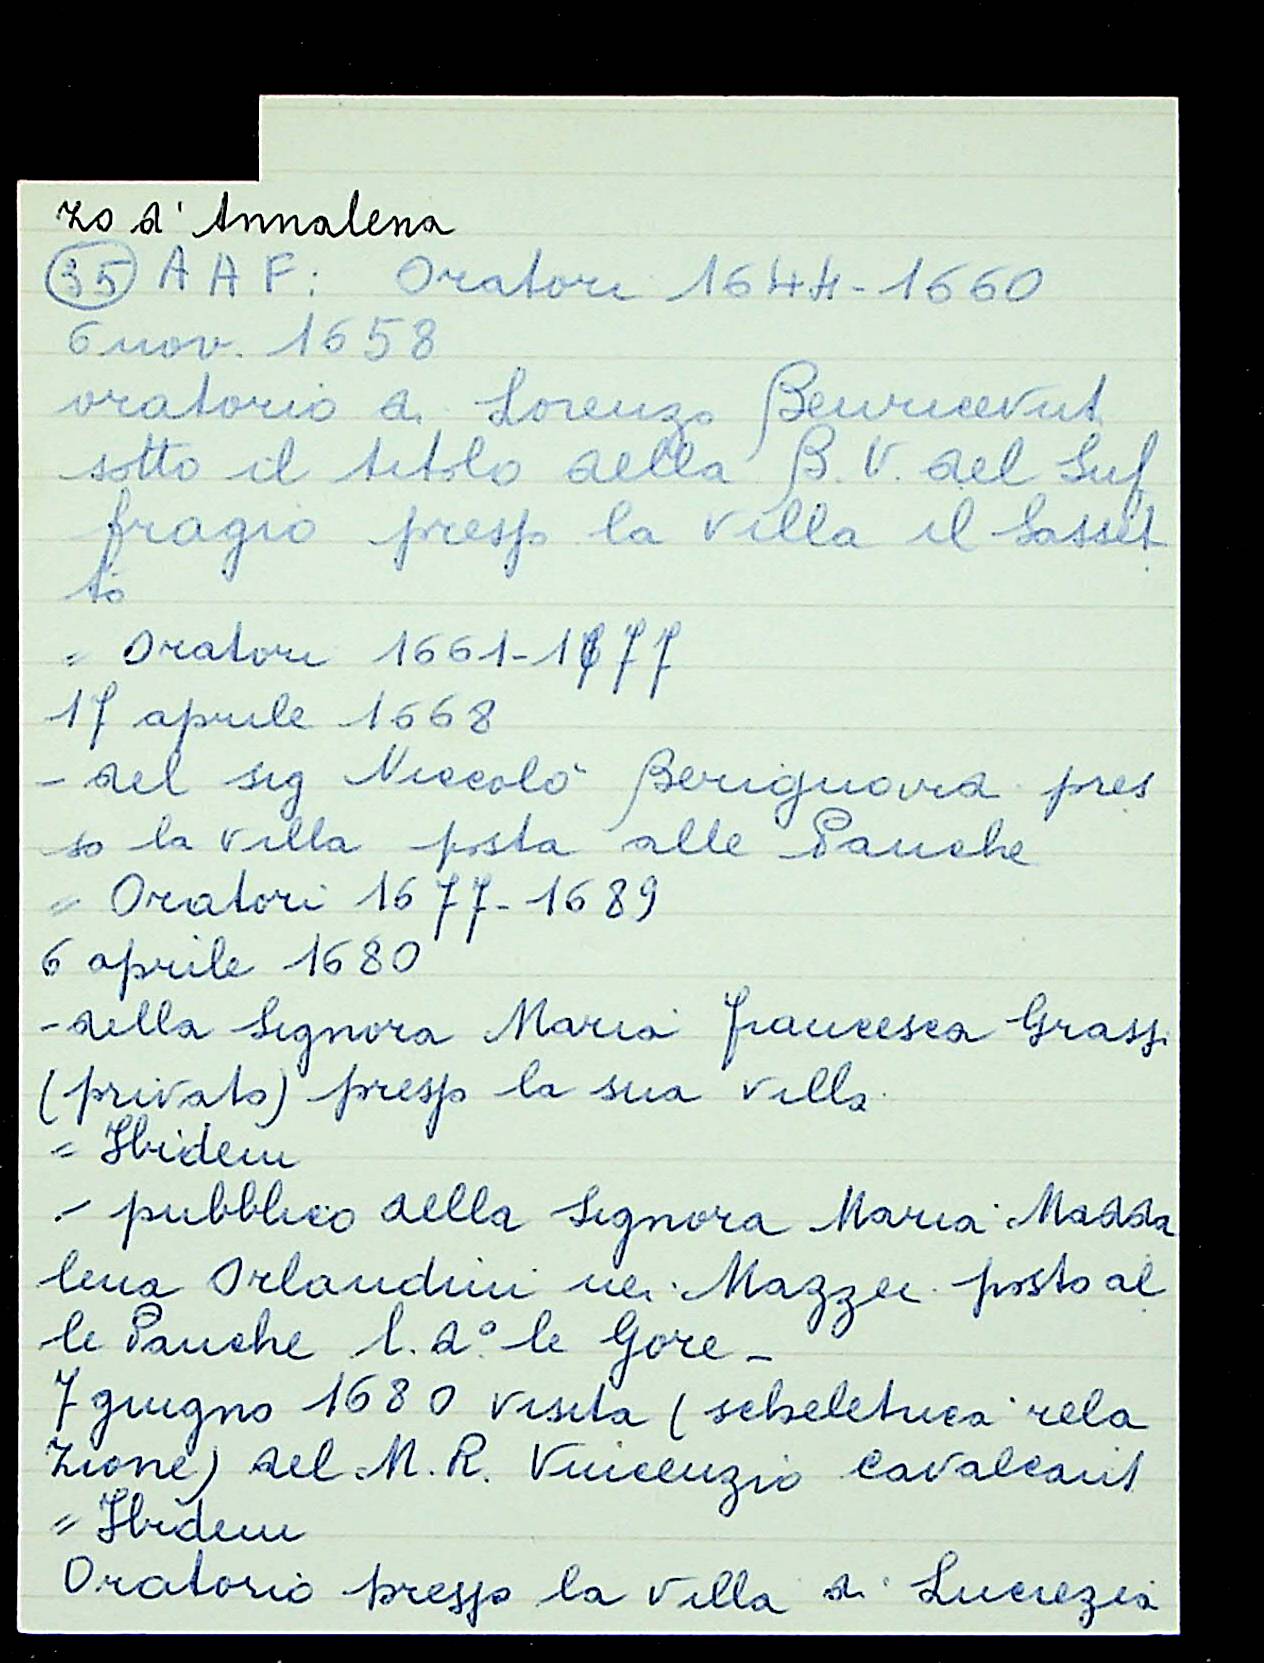 zo d'Annalena
35 A A F: Oratori 1644-1660
6 nov. 1658
oratorio di Lorenzo Benvicevut
sotto il titolo della B. V. del Suf
fragio presso la villa il Sasset
to
= Oratori 1661-1677
17 aprile 1668
- del sig Niccolò pres
so la villa posta alle Panche
= Oratori 1677-1689
6 aprile 1680
- della Signora Maria Francesca Grassi
(privato) presso la sua villa
= Ibidem
- pubblico della Signora Maria Madda
lena Orlandini nei Mazzei posto al
le Panche l. d.° le Gore -
7 giugno 1680 visita (scheletrica rela
zione) del M. R. Vincenzio Cavalcanti
= Ibidem
Oratorio presso la villa di Lucrezia